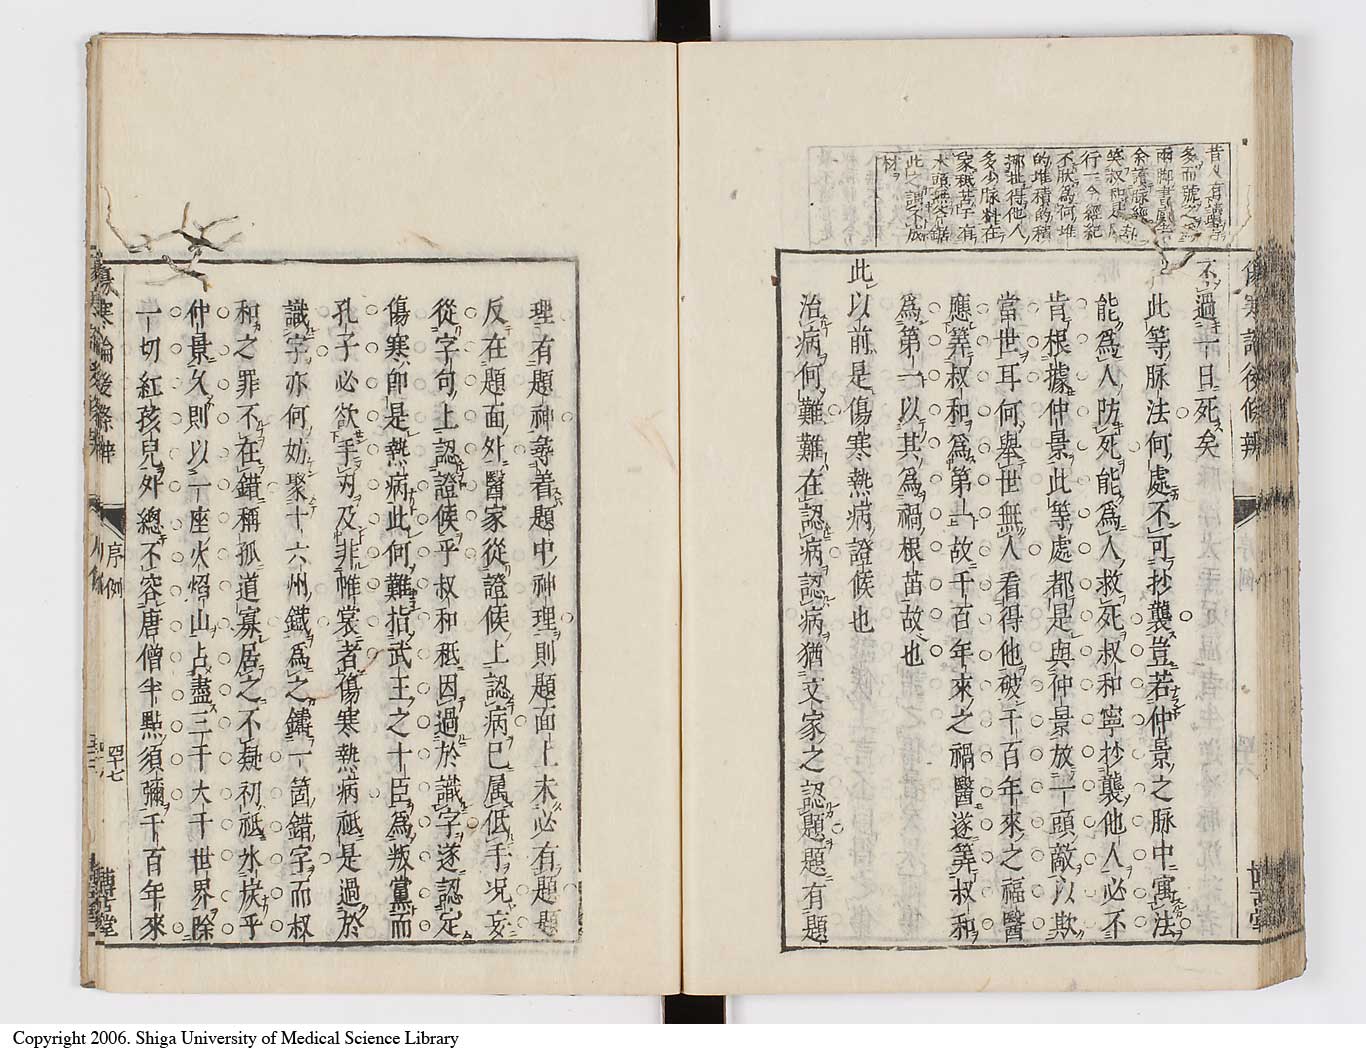 昔人有讀書
多而號之爲
兩脚書廚者
余讀脉經却
笑叔和是
行一今經紀
不厭爲何堆
的堆積的積
挪扯得他人
多少脉料在
家秪苦了有
木頭無斧鋸
此之謂不成
材
不過一日死矣
此等脉法何處不可抄襲豈若仲景之脉中寓法
能爲人防死能爲人救死叔和寧抄襲他人必不
肯根據仲景此等處都是與仲景放一頭敵以欺
當世耳何舉世無人看得他破千百年來之福醫
應筭叔和爲第一故千百年來之禍醫遂筭叔和
爲第一以其爲禍根苗故也
此以前是傷寒熱病證候也
治病何難難在認病認病猶文家之認題題有題
理有題神尋着題中神理則題面上未必有題題
反在題面外醫家從證候上認病已属低手况妄
從字句上認證候乎叔和秪因過於識字遂認定
傷寒即是熱病此何難指武王之十臣爲叛黨而
孔子必欲手刃及非帷裳者傷寒熱病祗是過於
識字亦何妨聚十六州鐵爲之鑄一箇錯字而叔
和之罪不在錯稱孤道寡居之不疑初祗氷炭乎
仲景久則以一座火焰山占盡三千大千世界除
一切紅孩兒外總不容唐僧半點須彌千百年來
序例
四十七
博古堂